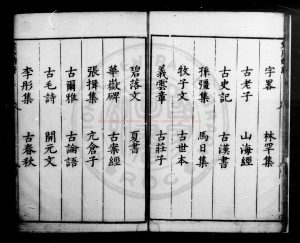 字畧 林罕集
古老子 山海經
古史記 古漢書
孫彊集 馬日集
牧子文 古世本
義雲章 古莊子
碧落文 夏書
華嶽碑 古案經
張揖集 亢倉子
古爾雅 古論語
古毛詩 開元文
李彤集 古春秋